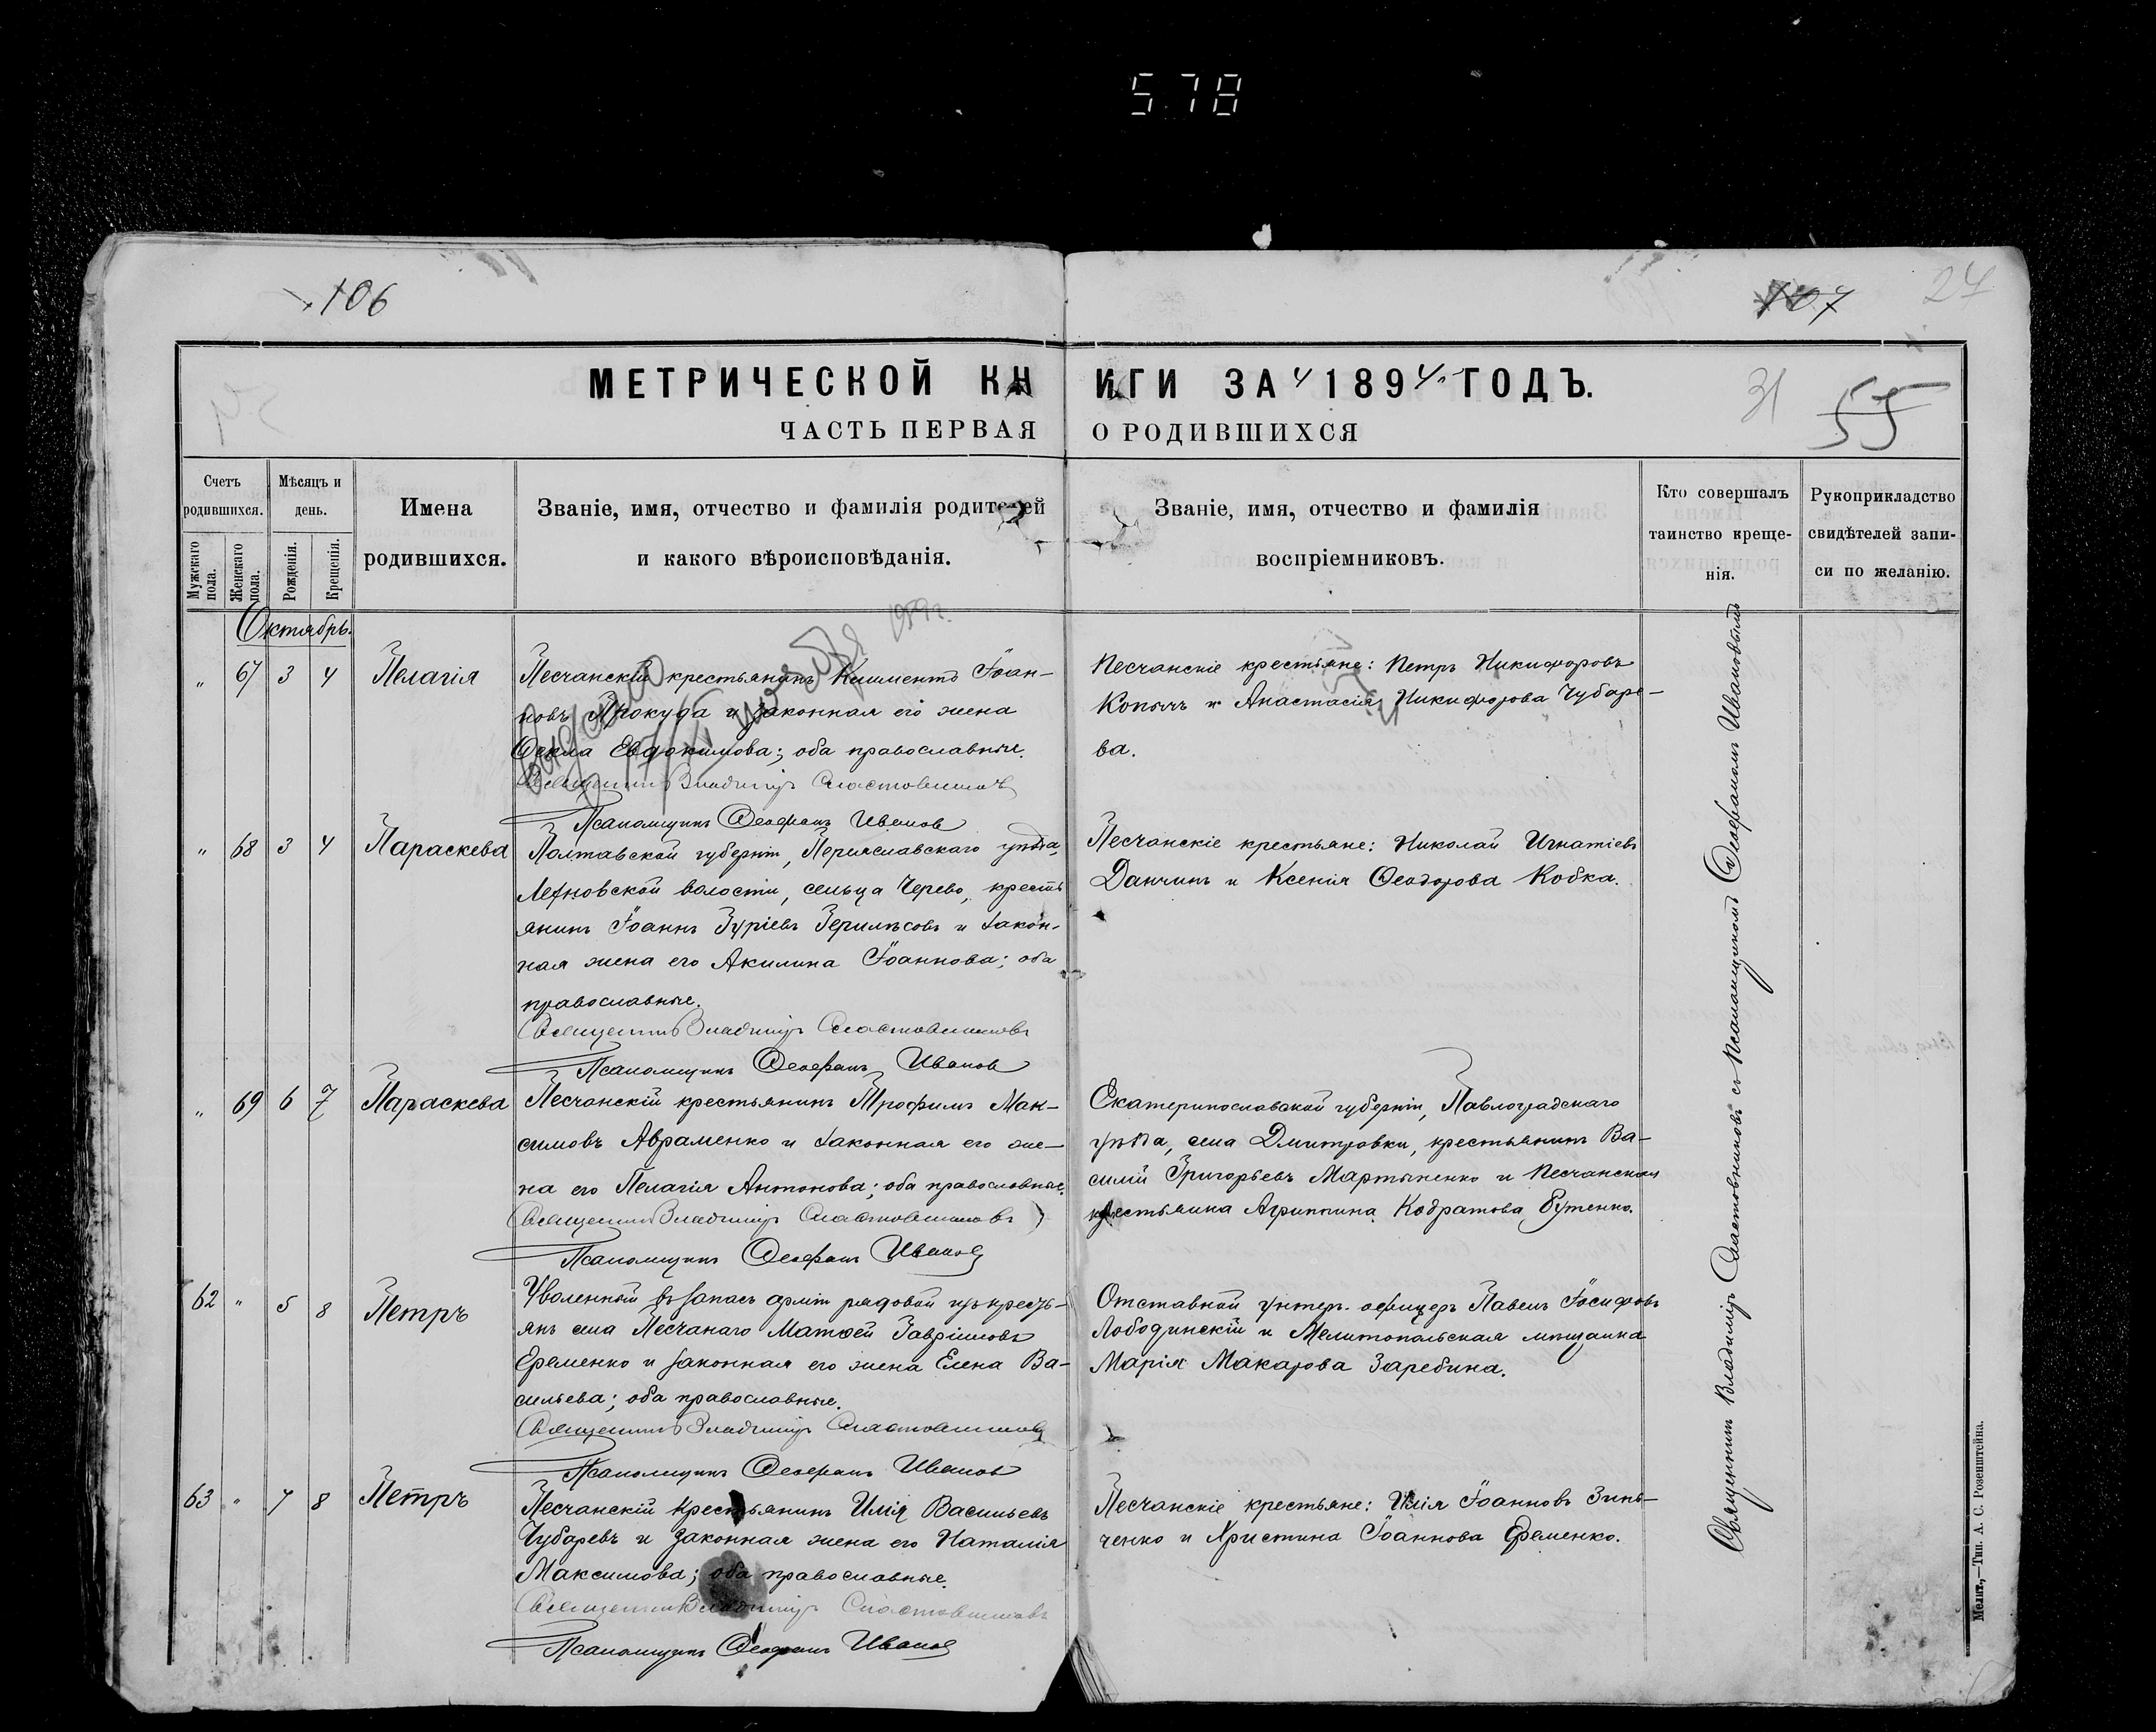 578
106
107
24
МЕТРИЧЕСКОЙ КНИГИ ЗА 1894 ГОДЪ.
31
55
ЧАСТЬ ПЕРВАЯ О РОДИВШИХСЯ
Счетъ родившихся.
Мужскаго пола.
Женскаго пола.
Мѣсяцъ и день.
Рожденія.
Крещенія.
Имена родившихся.
Званіе, имя, отчество и фамилія родителей
и какого вѣроисповѣданія.
Званіе, имя, отчество и фамилія
воспріемниковъ.
Кто совершалъ
таинство креще-
нія.
Рукоприкладство
свидѣтелей запи-
си по желанію.
Октябрь.
" 67 3 4 Пелагія
Песчанскій крестьянинъ Климентъ Іоан-
новъ и законная его жена
Ѳекла Евдокимова; оба православные.
Священникъ Владиміръ Сластовниковъ
Псаломщикъ Ѳеофанъ Ивановъ
Песчанскіе крестьяне: Петръ Никифоровъ
Копычъ и Анастасія Никифорова Чубаре-
ва.
" 68 3 4 Параскева
Полтавской губерніи, Переяславскаго уѣзда,
волости, сельца Черево, кресть
янинъ Іоаннъ и закон-
ная жена его Акилина Іоаннова; оба
православные.
Священникъ Владиміръ Сластовниковъ
Псаломщикъ Ѳеофанъ Ивановъ
Песчанскіе крестьяне: Николай Игнатіевъ
Данчинъ и Ксенія Ѳеодорова Кобка.
" 69 6 7 Параскева
Песчанскій крестьянинъ Трофимъ Мак-
симовъ Авраменко и законная его же-
на его Пелагія Антонова; оба православные.
Священникъ Владиміръ Сластовниковъ
Псаломщикъ Ѳеофанъ Ивановъ
Екатеринославской губерніи, Павлоградскаго
уѣзда, села Дмитровки, крестьянинъ Ва-
силій Григорьевъ Мартыненко и Песчанская
крестьянка Агриппина Кодратова Бутенко.
62 " 5 8 Петръ
Уволенный въ запасъ арміи рядовой изъ кресть-
янъ села Песчанаго Матѳей Гавріиловъ
Еременко и законная его жена Елена Ва-
сильева; оба православные.
Священникъ Владиміръ Сластовниковъ
Псаломщикъ Ѳеофанъ Ивановъ
Отставной унтеръ-офицеръ Павелъ Іосифовъ
Лободинскій и Мелитопольская мѣщанка
Марія Макарова Заребина.
63 " 7 8 Петръ
Песчанскій крестьянинъ Илія Васильевъ
Чубаревъ и законная жена его Наталія
Максимова; оба православные.
Священникъ Владиміръ Сластовниковъ
Псаломщикъ Ѳеофанъ Ивановъ
Песчанскіе крестьяне: Илія Іоанновъ Зинь-
ченко и Христина Іоаннова Еременко.
Священникъ Владиміръ Сластовниковъ съ псаломщикомъ Ѳеофаномъ Ивановымъ
Мелит.,—Тип. А. С. Розенштейна.